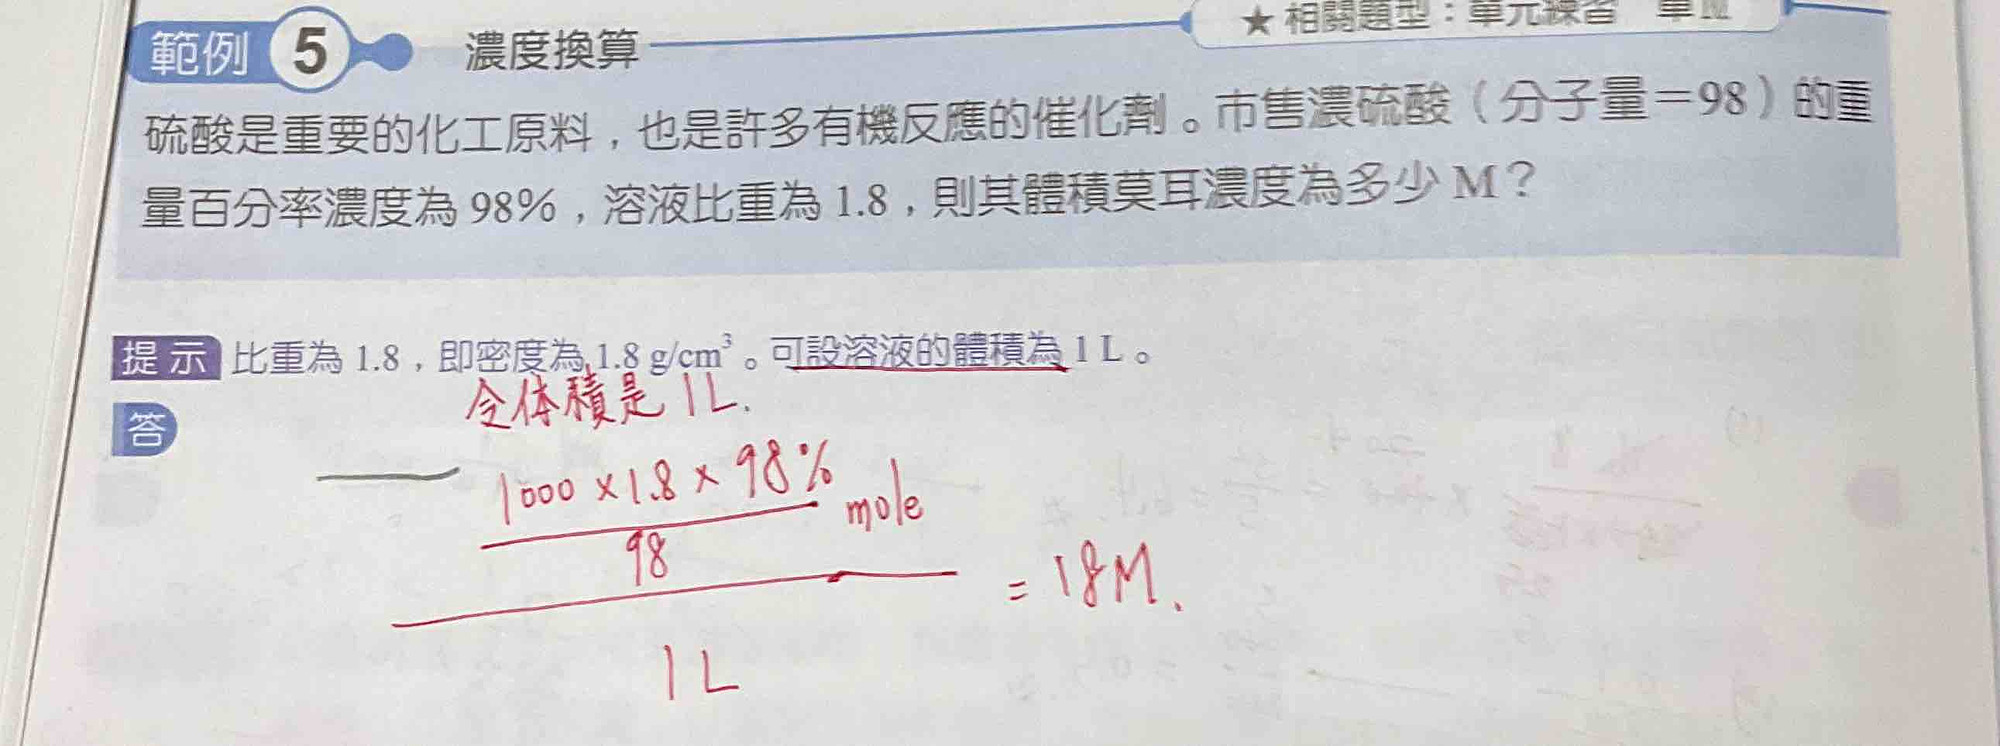 範例 5 濃度換算
★相關題型：單元練習 單
硫酸是重要的化工原料，也是許多有機反應的催化劑。市售濃硫酸（分子量＝98）的重
量百分率濃度為 98%，溶液比重為 1.8，則其體積莫耳濃度為多少 M？
提示 比重為 1.8，即密度為 1.8 g/cm³。可設溶液的體積為 1 L。
令体積是 1L.
答
1000 × 1.8 × 98%
mole
98
= 18M.
1L